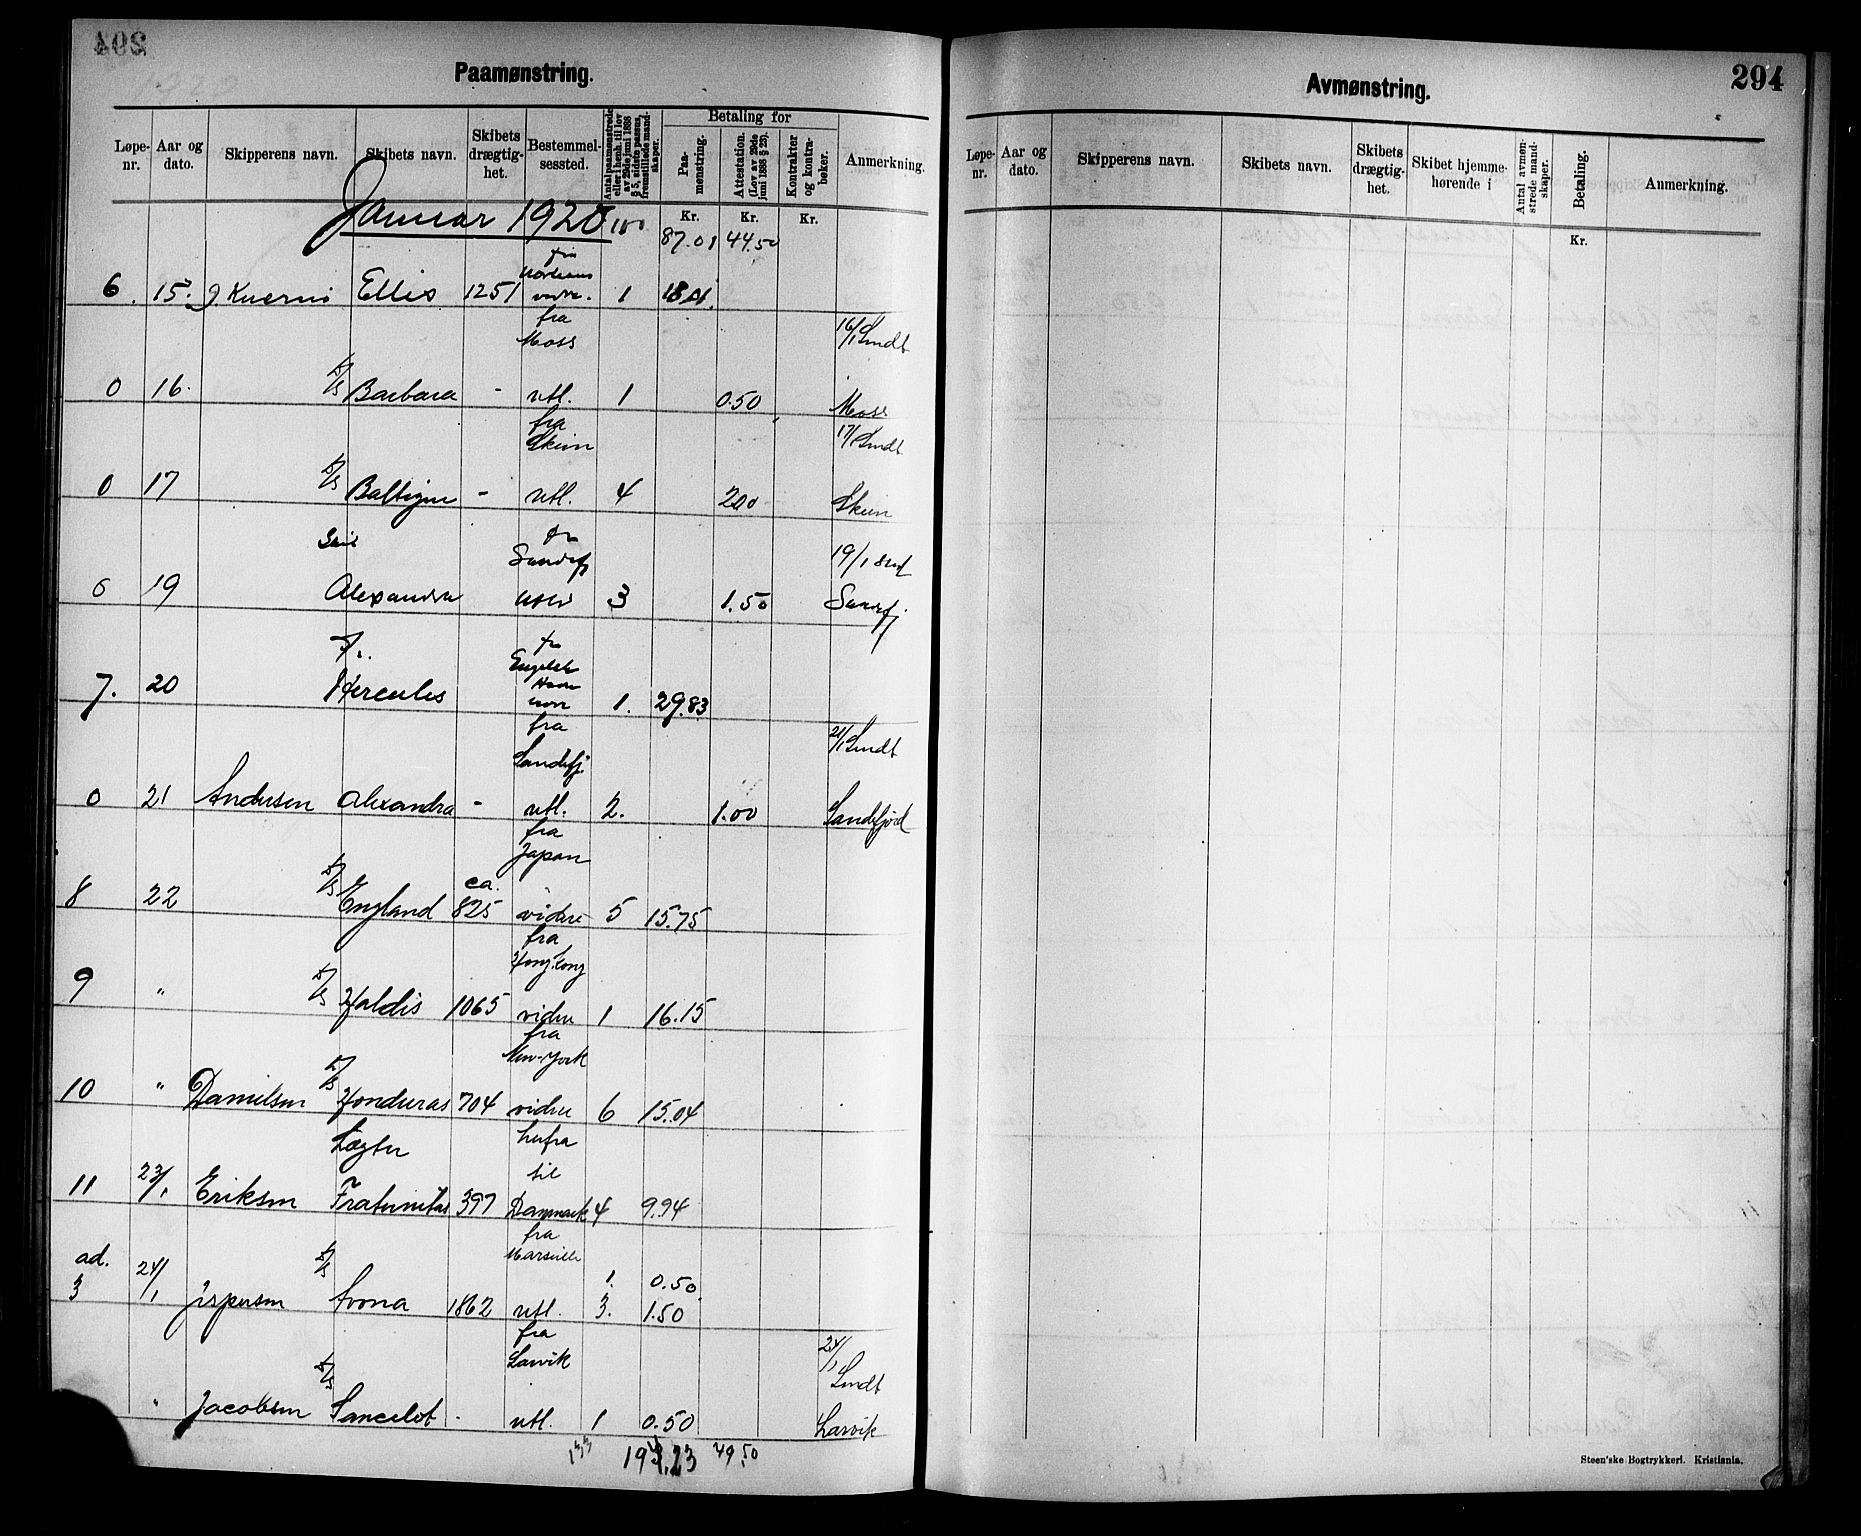 Paamønstring.
Løpe-nr. Aar og dato. Skipperens navn. Skibets navn. Skibets drægtig-het. Bestemmel-sessted. Antal paamønstrede eller i henh. til lov av 29de juni 1888 § 5, sidste passus, fremstillede mand-skaper. Betaling for Paa-mønstring. Attestation. (Lov av 29de juni 1888 § 23). Kontrakter og kontra-bøker. Anmerkning.
Januar 1920 Kr. Kr. Kr.
100 87.01 44.50
fra
6. 15. J. Ellis 1251 1 18.01
fra
Moss 16/1 Sendt
0 16. D/S Barbara - utl. 1 0.50 Moss
fra
Skien 17/1 Sendt
0 17 D/S - utl. 4 2.00 Skien
Seil fra
Sandefj 19/1 Sendt
0 19 Alexandra 3 1.50 Sandefj
fra
7. 20 Hercules 1. 29.83
fra
Sandefj 21/1 Sendt
0 21 Andersen Alexandra - utl. 2. 1.00 Sandefjord
fra
Japan
ca.
8 22 D/S England 825 videre 5 15.75
fra
Hongkong
9 " D/S Haldis 1065 videre 1 16.15
fra
New-York
10 " Danielsen D/S Honduras 704 videre 6 15.04
Lægter herfra
til
11 23/1 Eriksen Fraternitas 397 Danmark 4 9.94
fra
Marseille
ad. D/S 1. 0.50
3 24/1 Jespersen Ivona 1862 utl. 3. 1.50
fra
Larvik 24/1 Sendt
" Jacobsen D/S Lancelot - utl. 1 0.50 Larvik
133 194.23 49.50
Avmønstring.
294
Løpe-nr. Aar og dato. Skipperens navn. Skibets navn. Skibets drægtig-het. Skibet hjemme-hørende i Antal avmøn-strede mand-skaper. Betaling. Anmerkning.
Kr.
Steen'ske Bogtrykkeri. Kristiania.